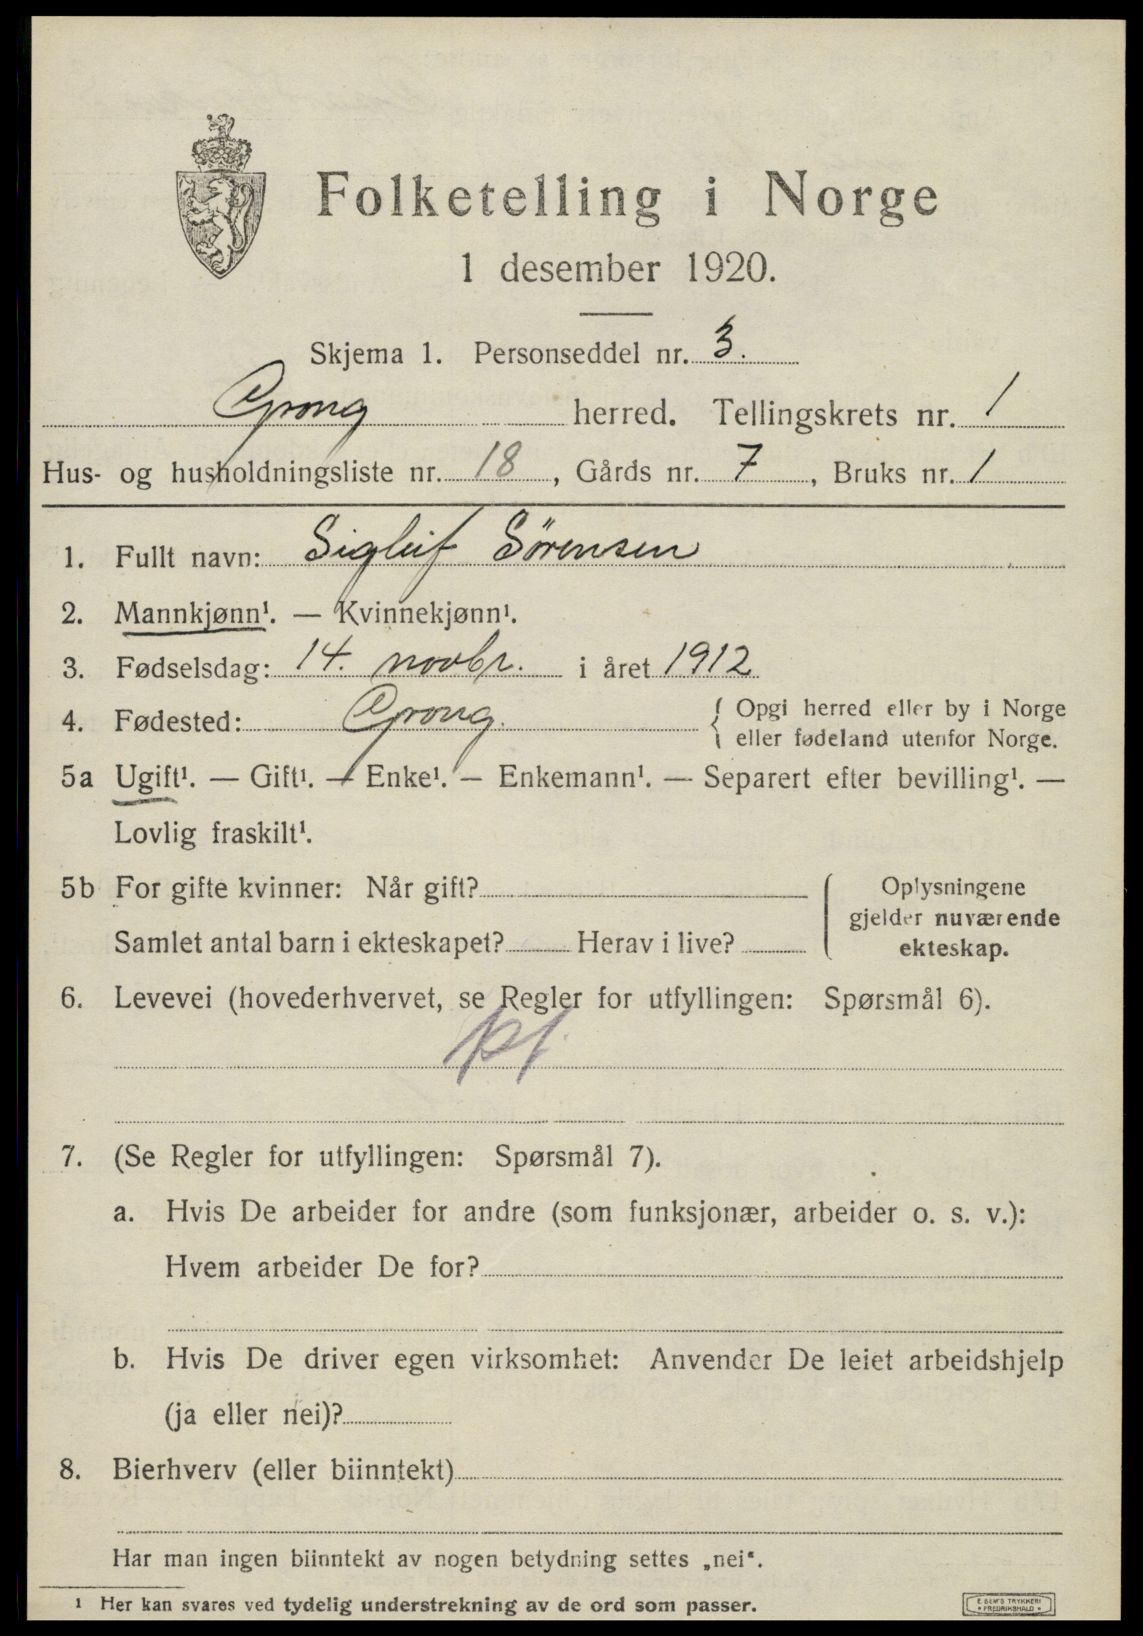 Folketelling i Norge
1 desember 1920.
Skjema 1. Personseddel nr. 3.
Grong herred. Tellingskrets nr. 1
Hus- og husholdningsliste nr. 18, Gårds nr. 7, Bruks nr. 1
1. Fullt navn: Sigleif Sörensen
2. Mannkjønn¹. — Kvinnekjønn¹.
3. Fødselsdag: 14. novbr. i året 1912
4. Fødested: Grong. { Opgi herred eller by i Norge
eller fødeland utenfor Norge.
5a Ugift¹. — Gift¹. — Enke¹. — Enkemann¹. — Separert efter bevilling¹. —
Lovlig fraskilt¹.
5b For gifte kvinner: Når gift? { Oplysningene
gjelder nuværende
Samlet antal barn i ekteskapet? Herav i live? ekteskap.
6. Levevei (hovederhvervet, se Regler for utfyllingen: Spørsmål 6).
7. (Se Regler for utfyllingen: Spørsmål 7).
a. Hvis De arbeider for andre (som funksjonær, arbeider o. s. v.):
Hvem arbeider De for?
b. Hvis De driver egen virksomhet: Anvender De leiet arbeidshjelp
(ja eller nei)?
8. Bierhverv (eller biinntekt)
Har man ingen biinntekt av nogen betydning settes „nei".
¹ Her kan svares ved tydelig understrekning av de ord som passer.
E. SEM'S TRYKKERI
FREDRIKSHALD